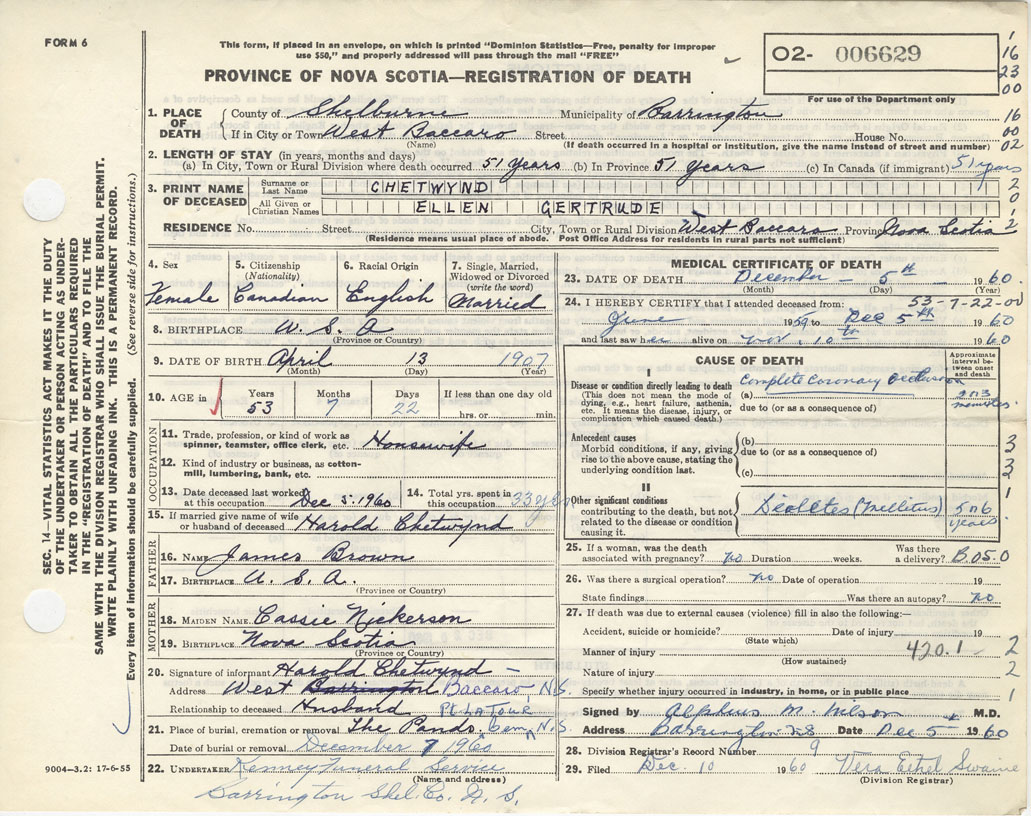 FORM 6
This form, if placed in an envelope, on which is printed "Dominion Statistics—Free, penalty for improper
use $50," and properly addressed will pass through the mail "FREE"
PROVINCE OF NOVA SCOTIA—REGISTRATION OF DEATH
02- 006629
For use of the Department only
1
16
23
00
16
00
02
1. PLACE OF DEATH
County of Shelburne Municipality of Barrington
If in City or Town West Baccaro Street House No.
(Name) (If death occurred in a hospital or institution, give the name instead of street and number)
2. LENGTH OF STAY (in years, months and days)
(a) In City, Town or Rural Division where death occurred. 51 years (b) In Province 51 years (c) In Canada (if immigrant) 51 years
3. PRINT NAME OF DECEASED
Surname or Last Name CHETWYND
All Given or Christian Names ELLEN GERTRUDE
RESIDENCE No. Street City, Town or Rural Division West Baccaro Province Nova Scotia
(Residence means usual place of abode. Post Office Address for residents in rural parts not sufficient)
4. Sex
Female
5. Citizenship
(Nationality)
Canadian
6. Racial Origin
English
7. Single, Married,
Widowed or Divorced
(write the word)
Married
8. BIRTHPLACE U. S. A
(Province or Country)
9. DATE OF BIRTH April 13 1907
(Month) (Day) (Year)
10. AGE in
Years Months Days If less than one day old
53 7 22 hrs. or min.
OCCUPATION
11. Trade, profession, or kind of work as
spinner, teamster, office clerk, etc. Housewife
12. Kind of industry or business, as cotton-
mill, lumbering, bank, etc.
13. Date deceased last worked
at this occupation Dec 5, 1960
14. Total yrs. spent in
this occupation 33 yrs
15. If married give name of wife
or husband of deceased Harold Chetwynd
FATHER
16. NAME James Brown
17. BIRTHPLACE U. S. A.
(Province or Country)
MOTHER
18. MAIDEN NAME Cassie Nickerson
19. BIRTHPLACE Nova Scotia
(Province or Country)
20. Signature of informant Harold Chetwynd
Address West Barrington Baccaro N.S.
Relationship to deceased Husband
21. Place of burial, cremation or removal The Pands Cem, N.S.
Date of burial or removal December 7 1960
22. UNDERTAKER Kenney Funeral Service
(Name and address)
Barrington Shel. Co. N. S.
MEDICAL CERTIFICATE OF DEATH
23. DATE OF DEATH December - 5th 1960
(Month) (Day) (Year)
24. I HEREBY CERTIFY that I attended deceased from: 53-7-22-00
June 1959 to Dec 5th 1960
and last saw her alive on Nov. 10th 1960
CAUSE OF DEATH
Approximate interval between onset and death
I
Disease or condition directly leading to death
(This does not mean the mode of dying, e.g., heart failure, asthenia, etc. It means the disease, injury, or complication which caused death.)
(a) Complete Coronary Occlusion
due to (or as a consequence of)
2 or 3 minutes.
Antecedent causes
Morbid conditions, if any, giving rise to the above cause, stating the underlying condition last.
(b)
due to (or as a consequence of)
(c)
II
Other significant conditions
contributing to the death, but not related to the disease or condition causing it.
Diabetes (Mellitus) 5 or 6 years.
25. If a woman, was the death
associated with pregnancy? no Duration weeks. Was there a delivery? B05.0
26. Was there a surgical operation? no Date of operation 19
State findings Was there an autopsy? no
27. If death was due to external causes (violence) fill in also the following:—
Accident, suicide or homicide? Date of injury 19
(State which)
Manner of injury 420.1
(How sustained)
Nature of injury
Specify whether injury occurred in industry, in home, or in public place
Signed by Alpheus M. Wilson M.D.
Address Barrington N S Date Dec 5 1960
28. Division Registrar's Record Number 9
29. Filed Dec. 10 1960 Vera Ethel Swaine
(Division Registrar)
SEC. 14—VITAL STATISTICS ACT MAKES IT THE DUTY
OF THE UNDERTAKER OR PERSON ACTING AS UNDER-
TAKER TO OBTAIN ALL THE PARTICULARS REQUIRED
IN THE "REGISTRATION OF DEATH" AND TO FILE THE
SAME WITH THE DIVISION REGISTRAR WHO SHALL ISSUE THE BURIAL PERMIT.
WRITE PLAINLY WITH UNFADING INK. THIS IS A PERMANENT RECORD.
Every item of information should be carefully supplied. (See reverse side for instructions.)
9004—3.2: 17-6-55